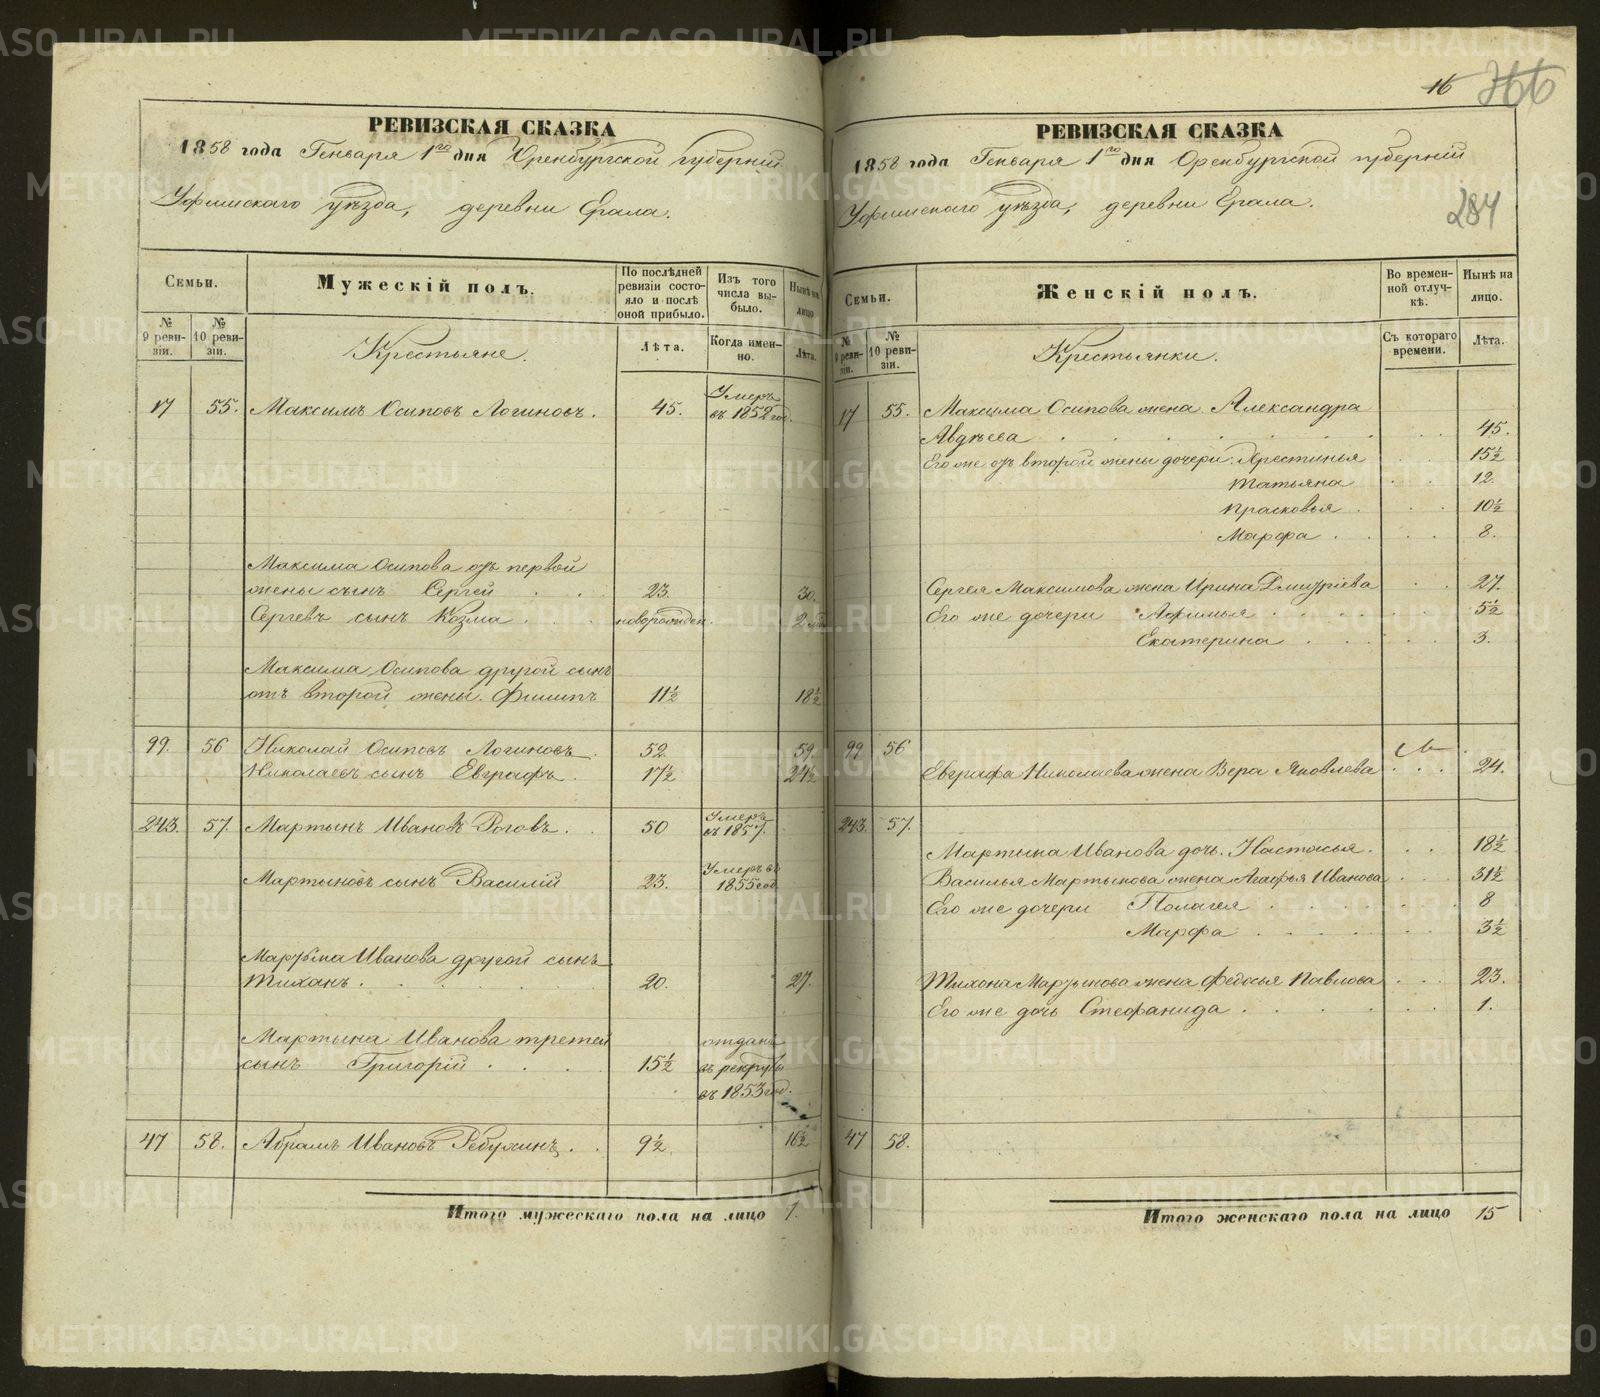 РЕВИЗСКАЯ СКАЗКА
1858 года Генваря 1го дня Оренбургской губерніи
Уфимскаго уѣзда, деревни Ерала.
Семьи.
Мужескій полъ.
По послѣдней ревизіи состояло и послѣ оной прибыло.
Изъ того числа выбыло.
Нынѣ на лицо
№ 9 ревизіи.
№ 10 ревизіи.
Крестьяне.
Лѣта.
Когда именно.
Лѣта.
17 55. Максимъ Осиповъ Логиновъ. 45. Умеръ въ 1852 год.
Максима Осипова отъ первой
жены сынъ Сергей 23. 30.
Сергевъ сынъ Козма новорожден. 2
Максима Осипова другой сынъ
отъ второй жены. Филипъ 11½ 18½
99. 56 Николай Осиповъ Логиновъ. 52. 59.
Николаевъ сынъ Евграфъ. 17½ 24½
243. 57. Мартынъ Ивановъ Роговъ. 50 Умеръ въ 1857.
Мартыновъ сынъ Василій 23. Умеръ въ 1855 год
Мартына Иванова другой сынъ
Тиханъ. 20. 27.
Мартына Иванова третей
сынъ Григорій 15½ отданъ въ рекруты въ 1853 год.
47 58. Абрамъ Ивановъ Ребухинъ. 9½ 16½
Итого мужескаго пола на лицо 7.
16 366
РЕВИЗСКАЯ СКАЗКА
1858 года Генваря 1го дня Оренбургской губерніи
Уфимскаго уѣзда, деревни Ерала.
284
Семьи.
Женскій полъ.
Во временной отлучкѣ.
Нынѣ на лицо.
№ 9 ревизіи.
№ 10 ревизіи.
Крестьянки.
Съ котораго времени.
Лѣта.
17 55. Максима Осипова жена Александра
Авдѣева 45.
Его же отъ второй жены дочери: Хрестинья 15½
Татьяна 12.
Прасковья 10½
Марфа 8.
Сергея Максимова жена Ирина Дмитріева 27.
Его же дочери Афимья 5½
Екатерина 3.
99 56
Евграфа Николаева жена Вера Яковлева 24.
243. 57.
Мартына Иванова дочь. Настасья. 18½
Василья Мартынова жена Агафья Иванова 31½
Его же дочери Полагея 8
Марфа 3½
Тихона Мартынова жена Федосья Павлова 23.
Его же дочь Стефанида 1.
47 58.
Итого женскаго пола на лицо 15
METRIKI.GASO-URAL.RU